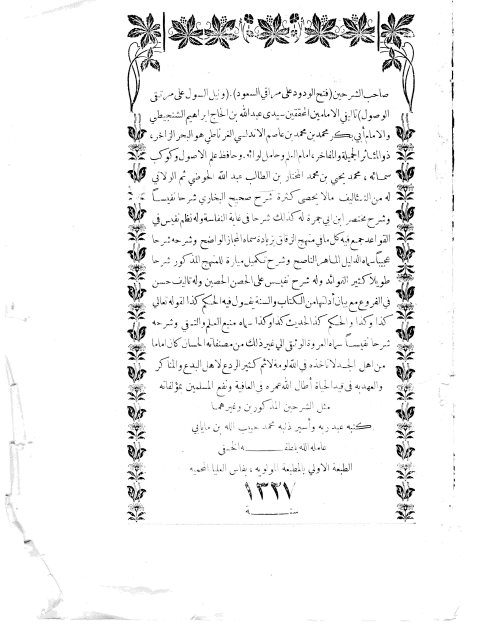 صاحب الشرحين (فتح الودود على مراقي السعود) . (ونيل السول على مرتقى
الوصول) تاليفي الامامين المحققين سيدى عبدالله بن الحاج ابراهيم الشنجيطي
والامام أبي بكر محمد بن محمد بن عاصم الاندلسي الغرناطي هو البحر الزاخر،
ذو المآثر الجميلة والمفاخر، امام النبل وحامل لوائه. وحافظ علم الاصول وكوكب
سمائه، محمد يحيى بن محمد المختار بن الطالب عبد الله الحوضي ثم الولاتي
له من التئاليف مالا يحصى كثرة شرح صحيح البخاري شرحا نفيسا
وشرح مختصر ابن ابي جمرة له كذلك شرحا في غاية النفاسة وله نظم نفيس في
القواعد جمع فيه كل ما في منهج الزقاق بزيادة سماه المجاز الواضح وشرحه شرحا
عجيبا سماه الدليل الماهر الناصح وشرح تكميل ميارة للمنهج المذكور شرحا
طويلا كثير الفوائد وله شرح نفيس على الحصن الحصين وله تاليف حسن
في الفروع مع بيان أدلتها من الكتاب والسنة يقول فيه الحكم كذا لقوله تعالى
كذا وكذا والحكم كذا الحديث كذا وكذا سماه منبع العلم والتقى وشرحه
شرحا نفيسا سماه العروة الوثقى الى غير ذلك من مصنفاته الحسان كان اماما
من اهل الجد لا تاخذه في الله لومة لائم كثير الردع لاهل البدع والمناكر
والعهد به في قيد الحياة أطال الله عمره في العافية ونفع المسلمين بمؤلفاته
مثل الشرحين المذكورين وغيرهما
كتبه عبد ربه وأسير ذنبه محمد حبيب الله بن مايابي
عامله الله بلطفه الخفي
الطبعة الاولى بالمطبعة المولوية، بفاس العليا المحمية
١٣٢٧
سنة